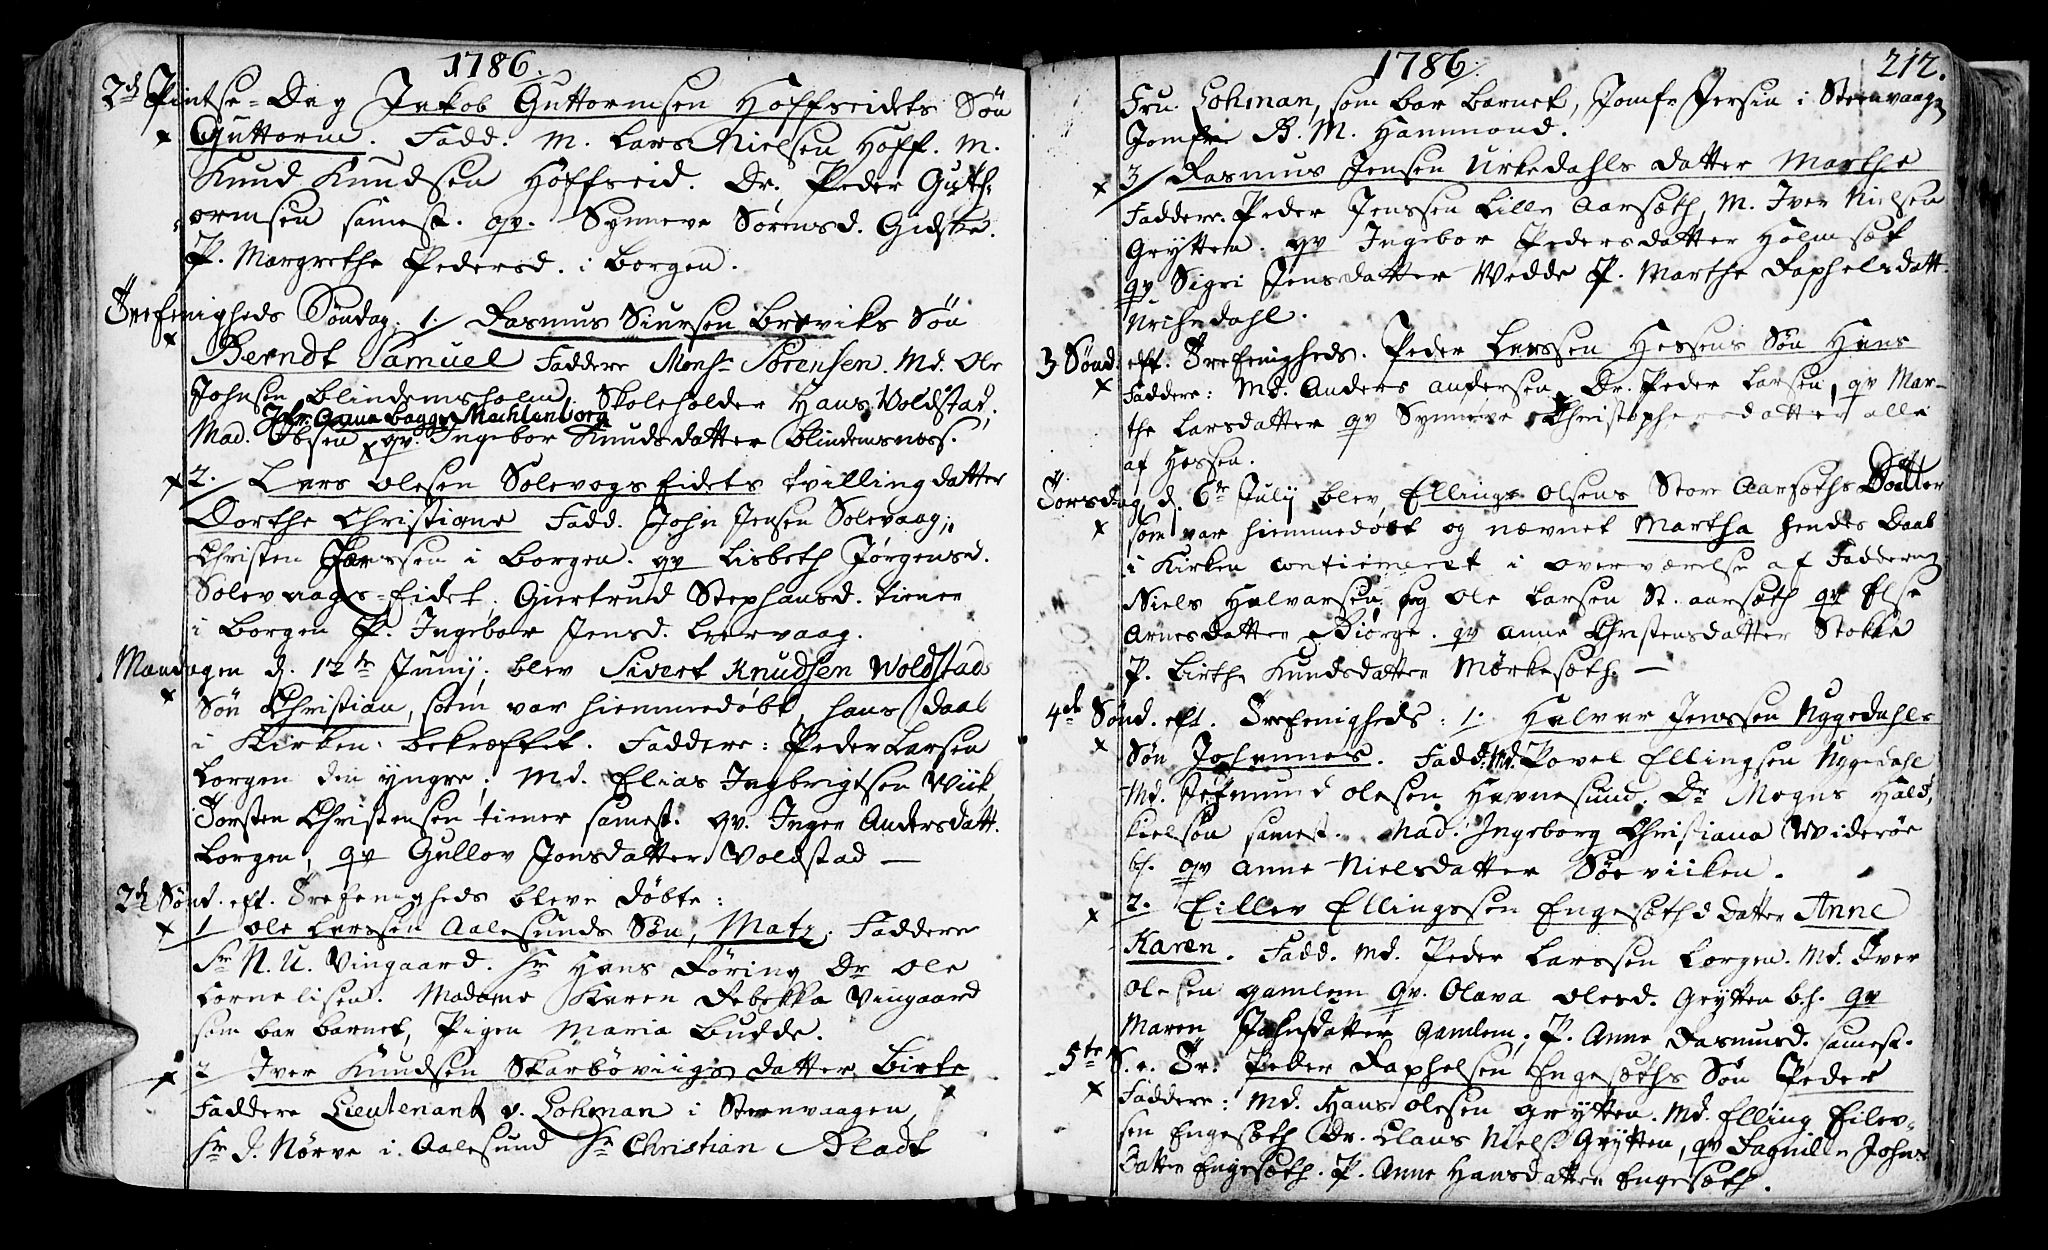 1786.
2d Pintse-Dag Jakob Guttormsen Hoffseidets Søn
Guttorm. Fadd. M. Lars Nielsen Hoff. M.
Knud Knudsen Hoffseid. Dr. Peder Gutt-
ormsen samest. qv. Synneve Sørensd. Gidske.
P. Margrethe Pedersd. i Borgen.
Trefenigheds Søndag. 1. Rasmus Siursen Breviks Søn
Berndt Samuel Faddere Monsr Sörensen. Md. Ole
Johnsen Blindemsholm. Skoleholder Hans Woldstad,
Jfr. Anna Bagge Mechlenborg
Mad. Ibsen qv. Ingebor Knudsdatter Blindemsnæss.
2. Lars Olesen Solevogs Eidets tvilling datter
Dorthe Christiane Fadd. John Jensen Solevaag;
Christen Larssen i Borgen. qv Lisbeth Jørgensd.
Solevaags-Eidet, Giertrud Stephansd. tiener
i Borgen P. Ingebor Jensd. Leervaag.
Mandagen d. 12te Junij. blev Sivert Knudsen Woldstads
Søn Christian, som var hiemmedøbt, hans Daab
i Kirken bekræftet. Faddere: Peder Larsen
Borgen den yngre; Md. Elias Ingbrigtsen Wiik,
Torsten Christensen tiener samest. qv. Inger Andersdatt.
Borgen, qv Gullov Jonsdatter Voldstad —
2d Sönd. eft. Trefenigheds bleve döbte:
1 Ole Larssen Aalesunds Søn, Matz. Faddere
Sr N. U. Vingaard. Sr Hans Föring Dr Ole
Cornelisen. Madame Karen Rebekka Vingaard
som bar barnet, Pigen Maria Budde.
2 Iver Knudsen Skarböviigs datter Birte
Faddere Lieutenant v. Lohman i Steenvaagen,
Sr D. Nörve i Aalesund Sr Christian Bladt
1786. 212.
Fru Lohman, som bar barnet, Jomfr Jersin i Steenvaagen
Jomfru B. M. Hammond.
3/ Rasmus Jensen Urkedahls datter Marthe
Faddere. Peder Jenssen Lille Aarsæth, M. Iver Nielsen
Grytten. qv Ingebor Pedersdatter Holmsæt
qv Sigri Jensdatter Vedde P. Marthe Raphelsdatt.
3 Sønd. eft. Trefenigheds. Peder Larssen Hessens Søn Hans
Faddere: Md. Anders Andersen, Dr. Peder Larsen, qv Mar-
the Larsdatter qv Synneve Christophersdatter alle
af Hessen.
Torsdag d. 6te Julij blev Ellings Olsens Store Aarsæths Datter
som var hiemmedøbt og nævnet Martha hendes Daab
i Kirken confirmeret i overværelse af Fadderne
Niels Halvarsen, og Ole Larsen St. Aarsæth qv Else
Arnesdatter Biørge. qv Anne Christensdatter Stokke
P. Birthe Knudsdatter Mørkesæth. —
4de Sønd. eft. Trefenigheds: 1. Halvar Jenssen Uggedahls
Søn Johannes. Fadd: Md. Povel Ellingsen Uggedahl
Md. Jetmund Olesen Havnesund. Dr Mogns Hald,
samest. Mad. Ingeborg Christiana Widerøe
qv Anne Nielsdatter Söeviiken.
2. Eillev Ellingssen Engesæths Datter Anne
Karen. Fadd. Md. Peder Larssen Borgen. Md. Iver
Olesen Gamlem qv. Olava Olesd. Grytten b.h. qv
Maren Johnsdatter Gamlem, P. Anne Rasmusd. samest.
5te S. e. Tr. Peder Raphelsen Engesæths Søn Peder
Faddere: Md. Hans Olesen Grytten. Md. Elling Eilev-
sen Engesæth Dr. Claus Niels. Grytten, qv Dagnille Johns
Datter Engesæth. P. Anne Hansdatter Engesæth.